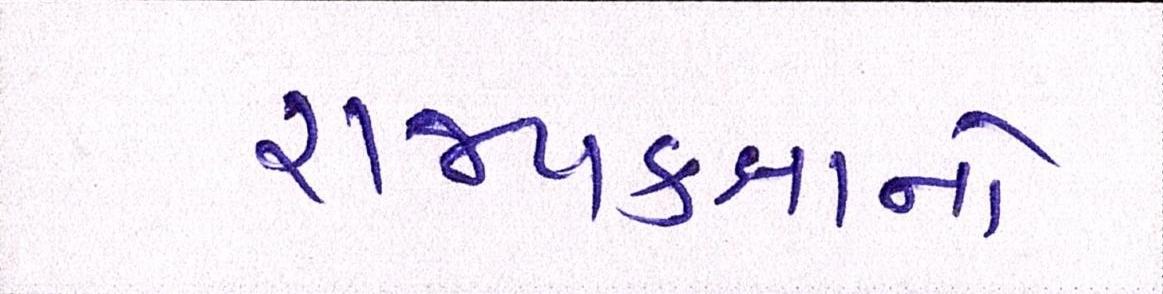 રાજ્યકક્ષાનો